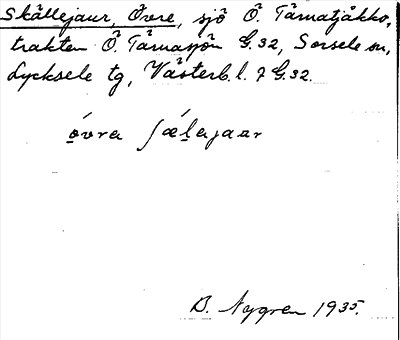 Skällejaur, Övre, sjö Ö. Tärnatjåkko,
trakten Ö. Tärnasjön G.32, Sorsele sn,
Lycksele tg, Västerb.l. 7 G.32.
óvra ʃǽlajaar
D. Nygren 1935.